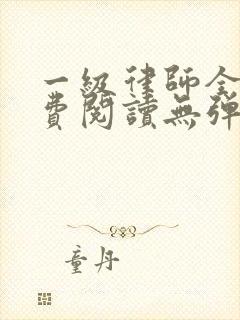 一級律師全
費閱讀無彈
童丹